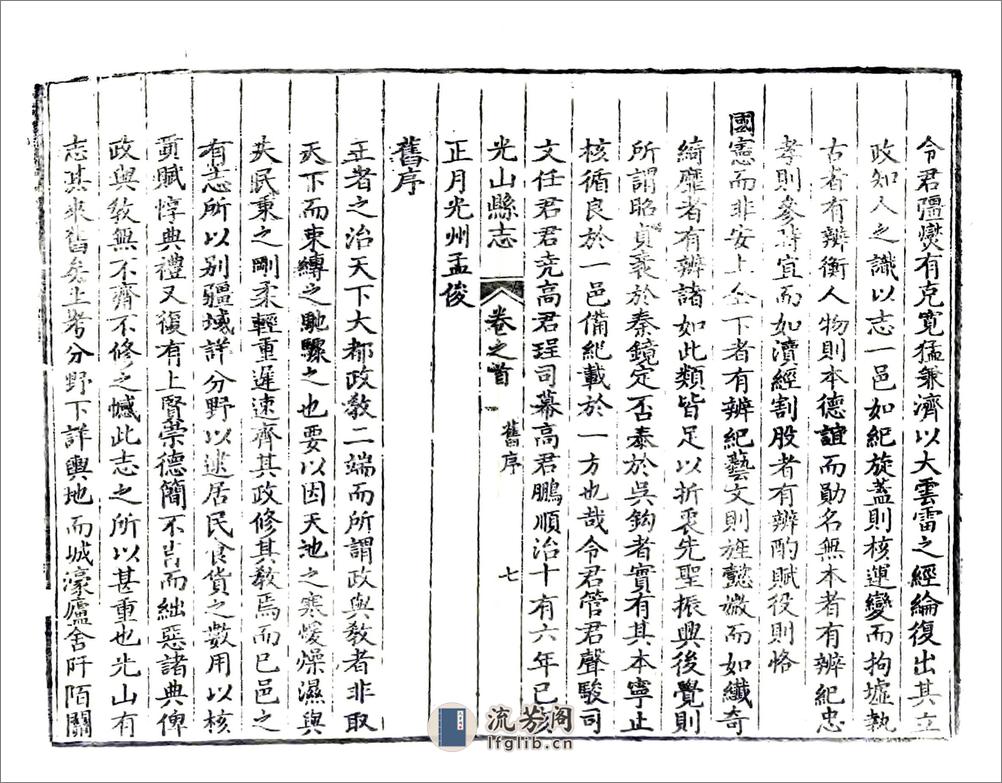 令君疆爕有克寛猛兼濟以大雲雷之經綸復出其立
政知人之識以志一邑如紀旋蓋則核運變而拘墟執
古者有辨衡人物則本德誼而勛名無本者有辨紀忠
孝則參時宜而如瀆經割股者有辨酌賦役則恪
國憲而非安上全下者有辨紀藝文則旌懿媺而如纖奇
綺靡者有辨諸如此類皆足以折衷先聖振興後覺則
所謂昭貞褒於秦鏡定否泰於吳鈎者實有其本寧止
核循良於一邑備紀載於一方也哉令君管君聲駿司
文任君君堯高君珵司幕高君鵬順治十有六年巳
光山縣志
卷之首
舊序
七
正月光州孟俊
舊序
王者之治天下大都政教二端而所謂政與教者非取
天下而束縛之馳驟之也要以因天地之寒煖燥濕與
夫民秉之剛柔輕重遲速齊其政修其教焉而已邑之
有志所以别疆域詳分野以逮居民食貨之數用以核
貢賦惇典禮又復有上賢崇德簡不肖而絀惡諸典俾
政與教無不齊不修之憾此志之所以甚重也光山有
志其來舊矣上考分野下詳輿地而城濠廬舍阡陌關
流芳閣
lfglib.cn